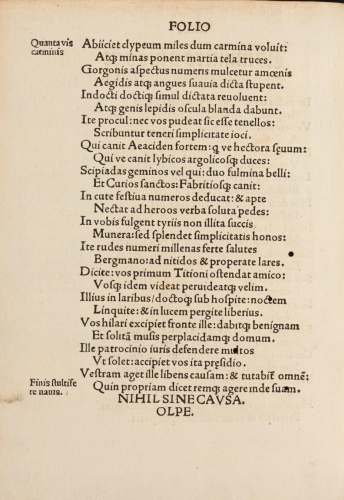 FOLIO
Quanta vis
carminis
Abiiciet clypeum miles dum carmina voluit:
Atq; minas ponent martia tela truces.
Gorgonis aspectus numeris mulcetur amœnis
Aegidis atq; angues suauia dicta stupent.
Indocti doctiq; simul dictata reuoluent:
Atq; genis lepidis oscula blanda dabunt.
Ite procul: nec vos pudeat sic esse tenellos:
Scribuntur teneri simplicitate ioci.
Qui canit Aeaciden fortem: q ve hectora sęuum:
Qui ve canit lybicos argolicosq; duces:
Scipiadas geminos vel qui: duo fulmina belli:
Et Curios sanctos: Fabritiosq; canit:
In cute festiua numeros deducat: & apte
Nectat ad heroos verba soluta pedes:
In vobis fulgent tyriis non illita succis
Munera: sed splendet simplicitatis honos:
Ite rudes numeri millenas ferte salutes
Bergmano: ad nitidos & properate lares.
Dicite: vos primum Titioni ostendat amico:
Vosq; idem videat peruideatq; velim.
Illius in laribus/ doctoq; sub hospite: noctem
Linquite: & in lucem pergite liberius.
Vos hilari excipiet fronte ille: dabitq; benignam
Et solitā musis perplacidamq; domum.
Ille patrocinio iuris defendere multos
Vt solet: accipiet vos ita pręsidio.
Vestram aget ille libens causam: & tutabit̃ omnē:
Finis stultife
re nauis.
Quin propriam dicet remq; agere inde suam.
NIHIL SINE CAVSA.
OLPE.